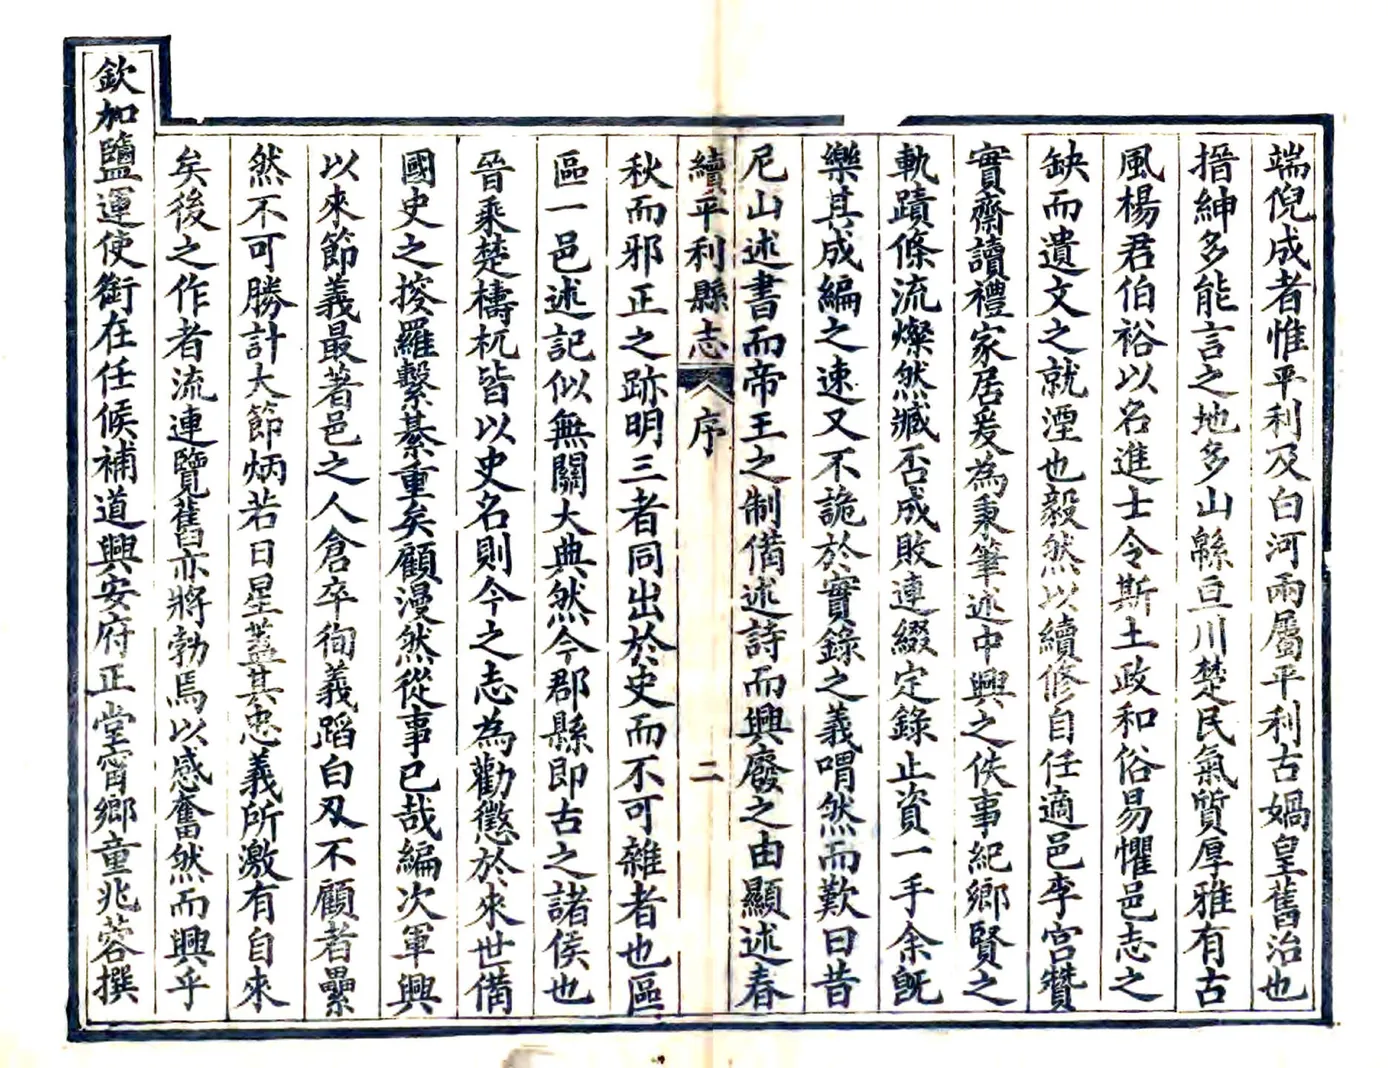 端倪成者惟平利及白河兩屬平利古媧皇舊治也
搢紳多能言之地多山緜亘川楚民氣質厚雅有古
風楊君伯裕以名進士令斯土政和俗易懼邑志之
缺而遺文之就湮也毅然以續修自任適邑李宮贊
實齋讀禮家居爰為秉筆述中興之佚事紀鄉賢之
軌蹟條流燦然臧否成敗連綴定錄止資一手余旣
樂其成編之速又不詭於實錄之義喟然而歎曰昔
尼山述書而帝王之制備述詩而興廢之由顯述春
續平利縣志 序 二
秋而邪正之跡明三者同出於史而不可雜者也區
區一邑述記似無關大典然今郡縣即古之諸侯也
晉乘楚檮杌皆以史名則今之志為勸懲於來世備
國史之搜羅繫綦重矣顧漫然從事已哉編次軍興
以來節義最著邑之人倉卒徇義蹈白刃不顧者纍
然不可勝計大節炳若日星蓋其忠義所激有自來
矣後之作者流連覽舊亦將勃焉以感奮然而興乎
欽加鹽運使銜在任候補道興安府正堂甯鄉童兆蓉撰